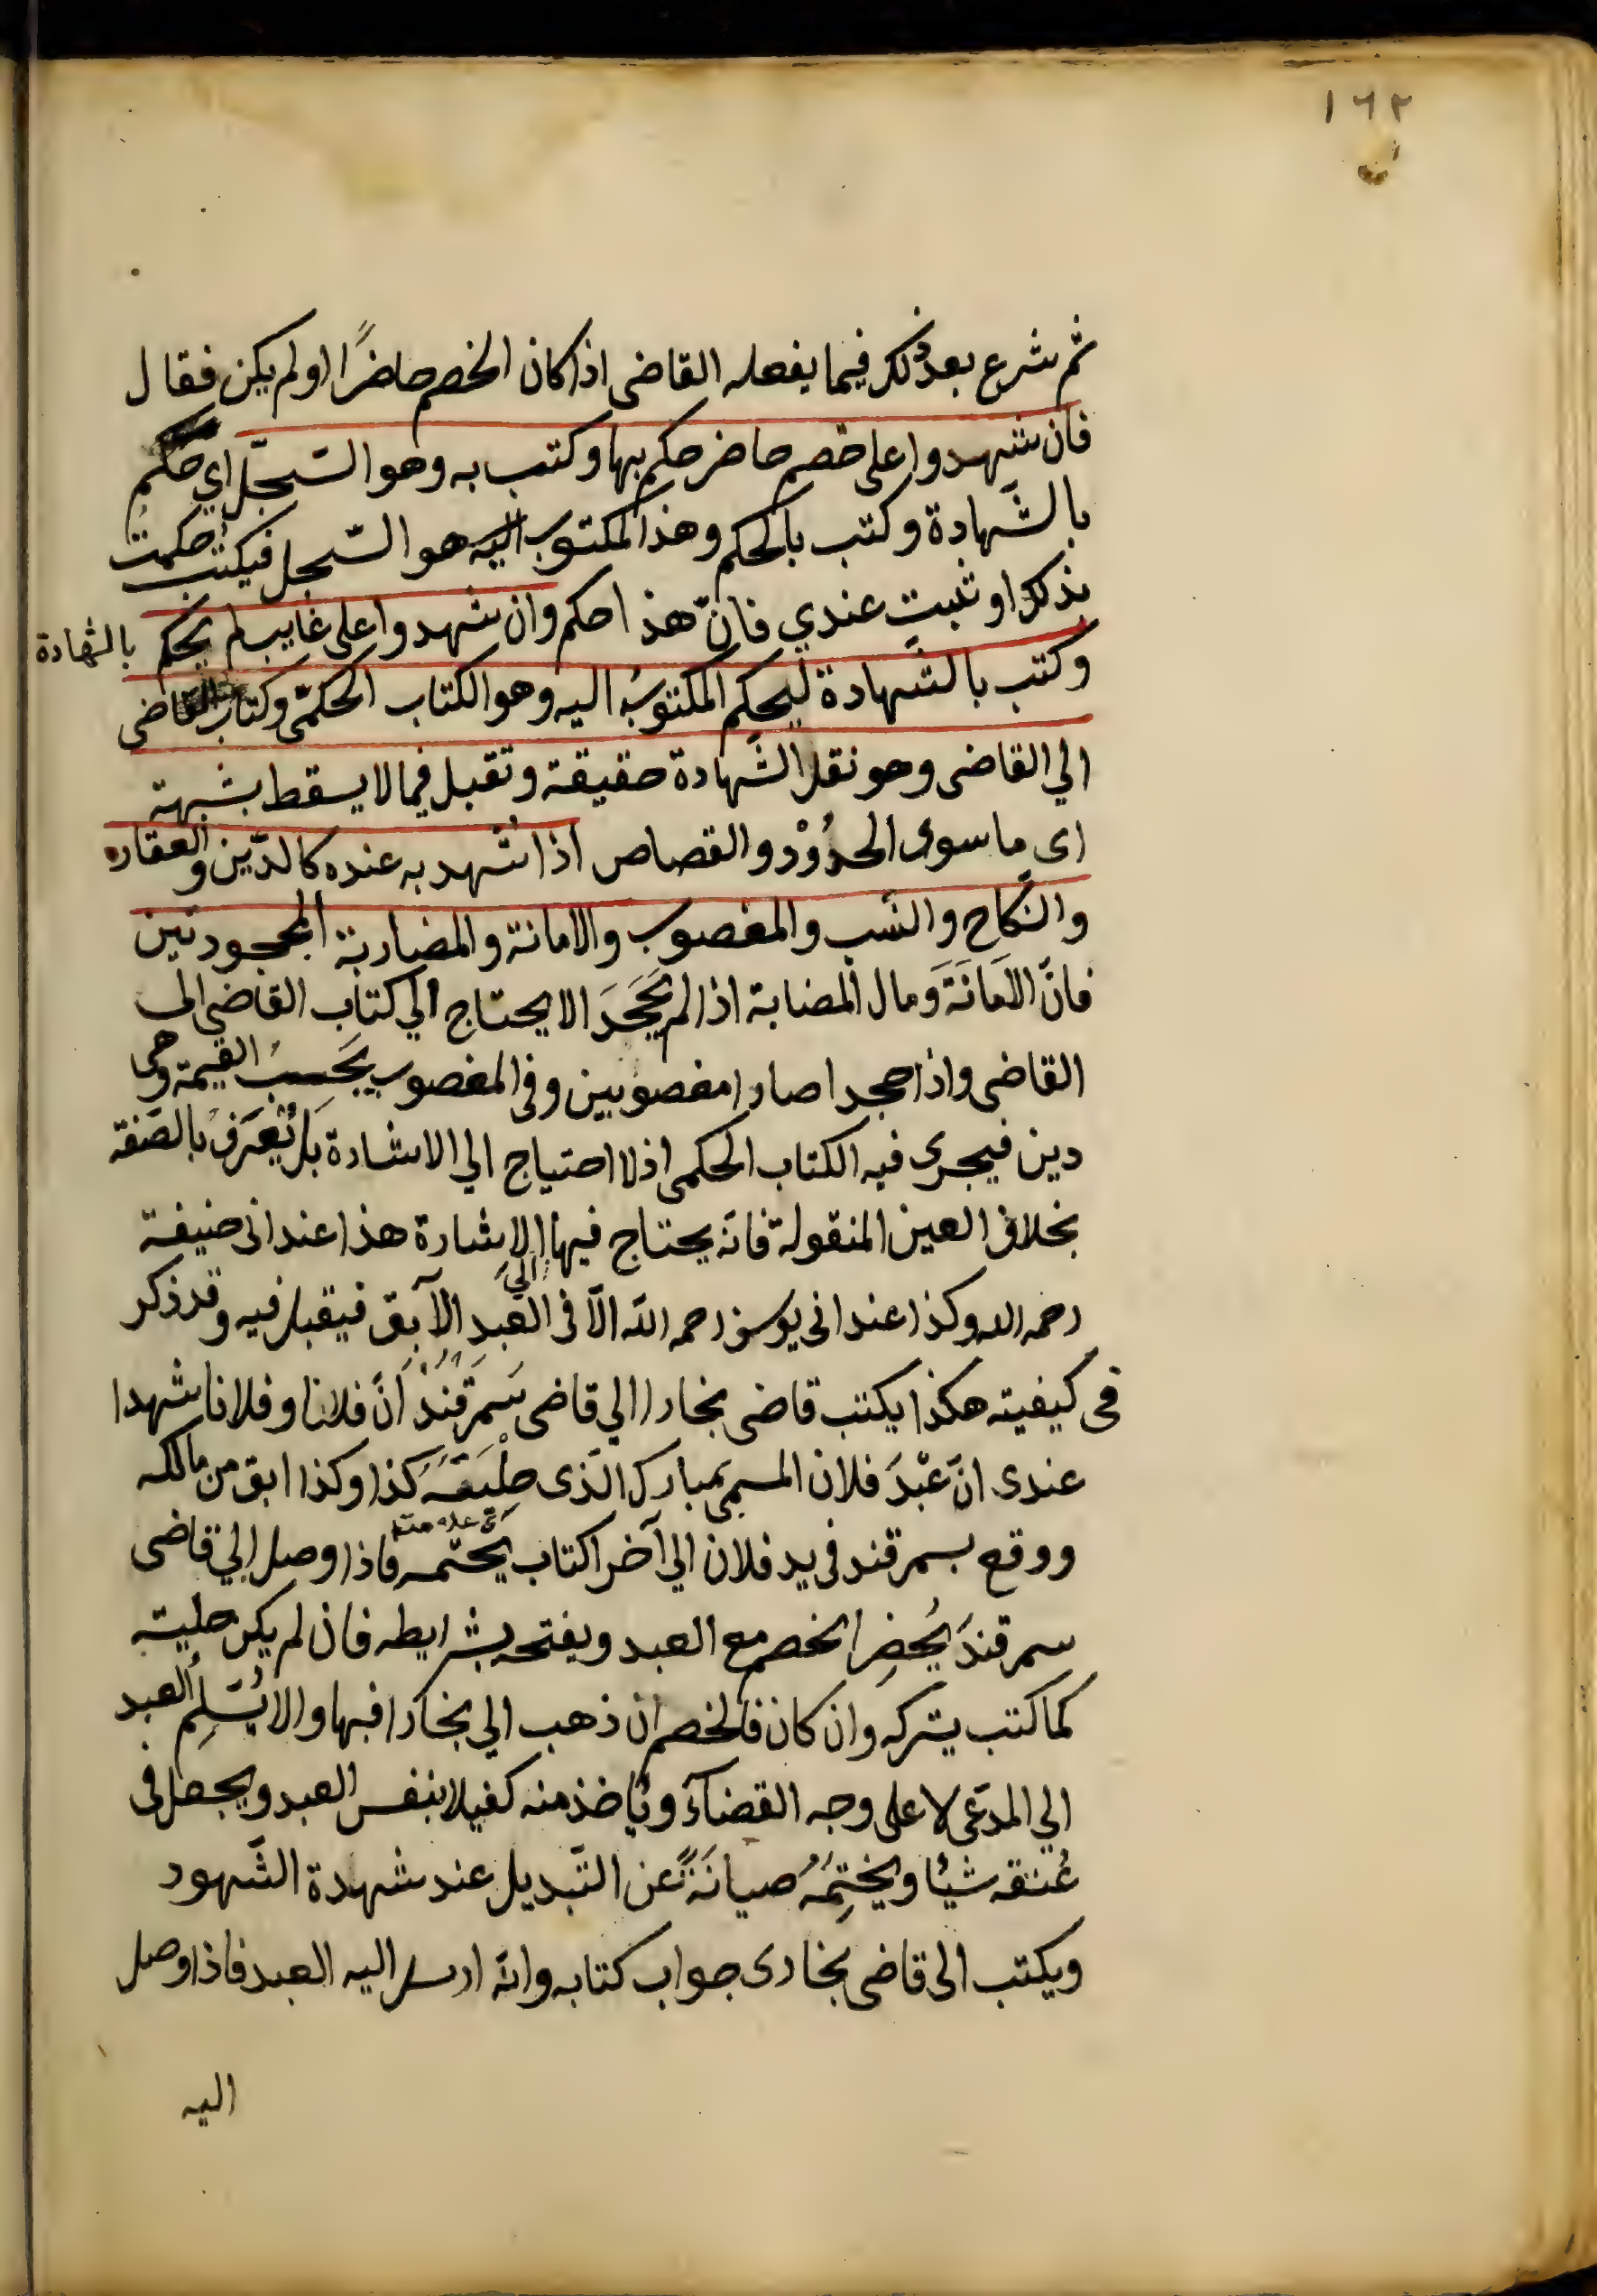 ١٦٢
ثم شرع بعد ذلك فيما يفعله القاضى اذا كان الخصم حاضرًا او لم يكن فقال
فان شهدوا على خصم حاضر حكم بها وكتب به وهو السّجلّ اي حكم
بالشَّهادة وكتب بالحكم وهذا المكتوب اليه هو السّجل فيكتب حكمتُ
بذكك او ثبت عندي فانّ هذا حكم وان شهدوا على غايب لم يحكم بالشهادة
وكتب بالشَّهادة ليحكم المكتوبُ اليه وهو الكتاب الحكمّى وكتاب القاضى
الي القاضى وهو نقل الشَّهادة حقيقة وتقبل فيما لا يسقط بشبهة
اى ما سوى الحدُوْد والقصاص اذا شهد به عنده كالدّين والعقار
والنّكاح والنّسب والمغصوب والامانة والمضاربة المجحودتين
فانّ الامَانَةَ وَمال المضابة اذا لم يَجَحدَ الا يحتاج الي كتاب القاضي الى
القاضى واذا جحدا صارا مغصوبين وفى المغصوب يَجبُ القيمة وهى
دين فيجرى فيه الكتاب الحكمى اذ لا احتياج الي الاشادة بَل يُعَرفُ بالصّفة
بخلاف العين المنقولة فانّه يحتاج فيها الي الاشارة هذا عند ابى حنيفة
رحمه الله وكذا عند ابى يوسف رحمه الله الّا فى العَبد الآبق فيقبل فيه وقد ذكر
فى كيفيته هكذا يكتب قاضى بخارا الي قاضى سَمَرقَندْ انّ فلانا وفلانا شهدا
عندى انّ عَبْدَ فلان المسمى بمبارك الّذى حِلْيَتَهُ كذا وكذا ابق من مالكه
ووقع بسمرقند فى يد فلان الي آخر اكتاب يختمه فاذا وصل الي قاضى
سمرقندَ يُحضِر الخصم مع العبد ويفتحه بشرايطه فان لم يكن حليته
كما كتب يتركه وان كان فالخصم ان ذهب الي بخارا فبها والا يُسَلِم العبد
الي المدّعى لا على وجه القضآء ويأخذ منه كفيلا بنفس العبد ويجعل فى
عُنقه شيْا ويختِمَهُ صيانَةً عن التّبديل عند شهدة الشّهود
ويكتب الى قاضى بخارى جواب كتابه وانّه ارسل اليه العبد فاذا وصل
اليه